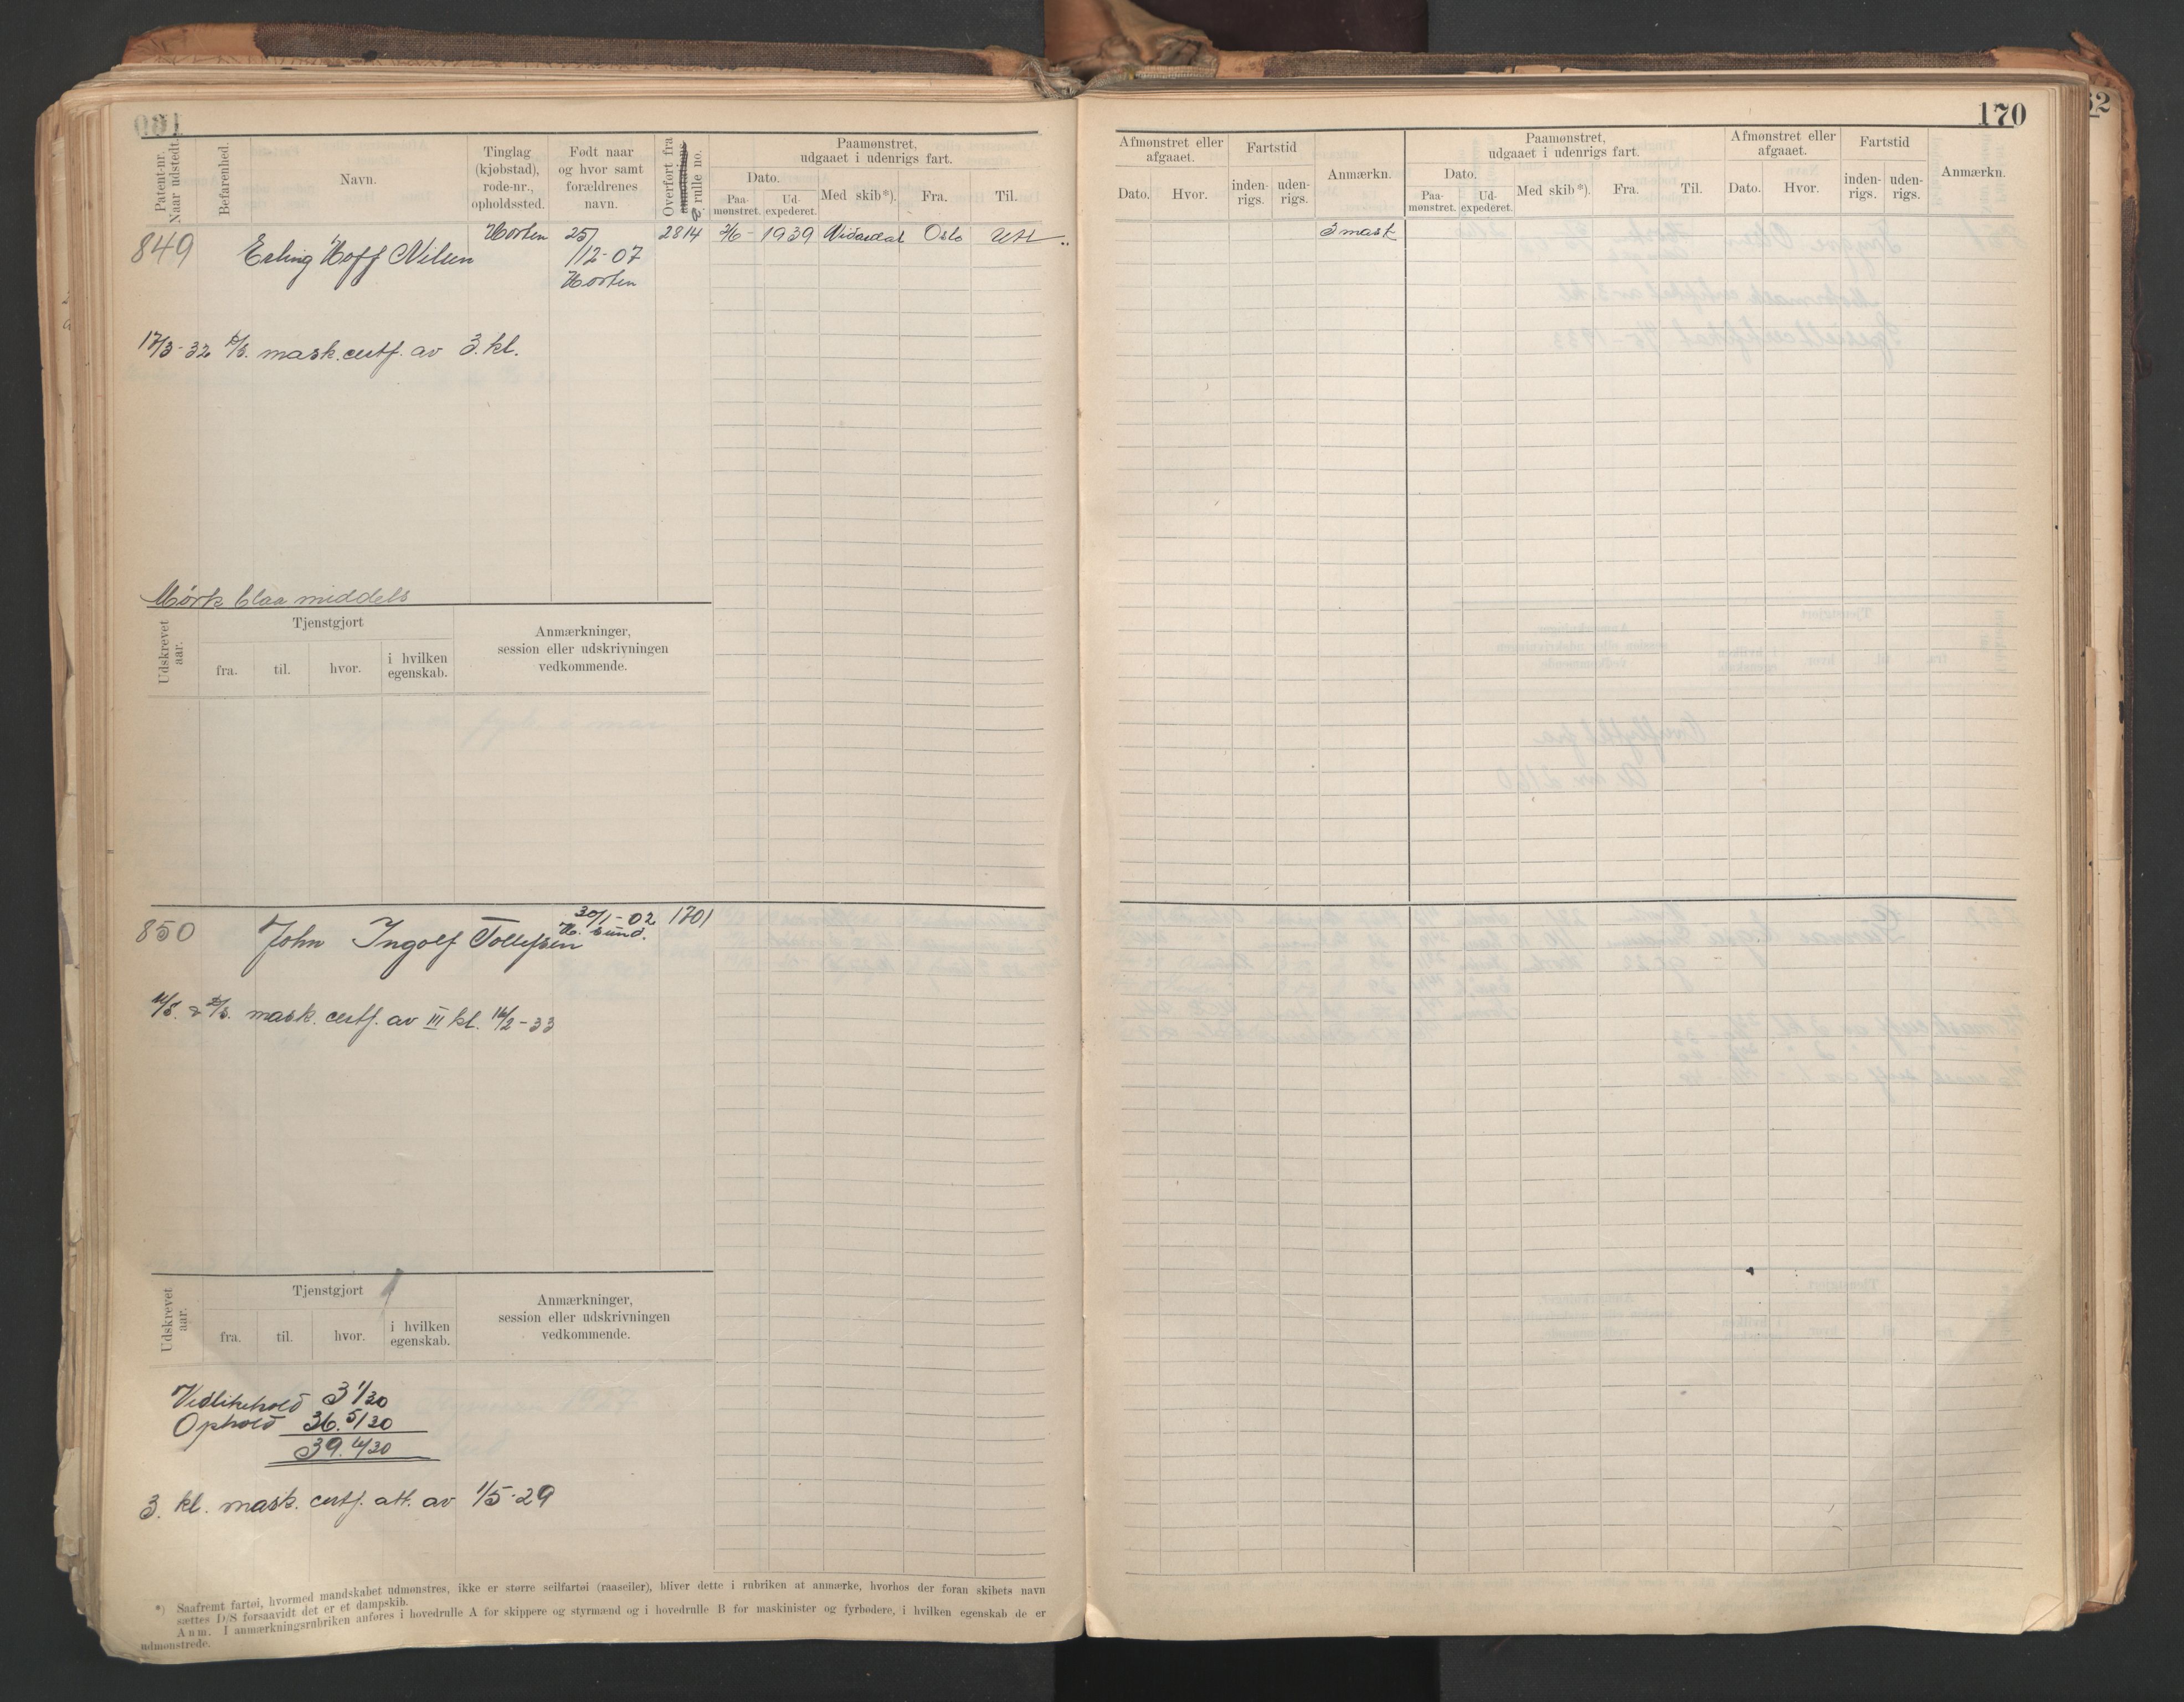 170
Patent-nr.
Naar udstedt.
Befarenhed.
Navn.
Tinglag
(kjøbstad),
rode-nr.,
opholdssted.
Født naar
og hvor samt
forældrenes
navn.
Overført fra
rulle no.
Paamønstret,
udgaaet i udenrigs fart.
Dato.
Paa-
mønstret.
Ud-
expederet.
Med skib*).
Fra.
Til.
Afmønstret eller
afgaaet.
Dato.
Hvor.
Fartstid
inden-
rigs.
uden-
rigs.
Anmærkn.
Paamønstret,
udgaaet i udenrigs fart.
Dato.
Paa-
mønstret.
Ud-
expederet.
Med skib*).
Fra.
Til.
Afmønstret eller
afgaaet.
Dato.
Hvor.
Fartstid
inden-
rigs.
uden-
rigs.
Anmærkn.
849 Erling Hoff Nilsen Horten 25/ 2814 2/6- 1939 Vidardal Oslo Utl 3 mask
/12-07
Horten
17/3-32 mask.certf. av 3.kl.
Mørk blaa middels
Udskrevet
aar.
Tjenstgjort
fra.
til.
hvor.
i hvilken
egenskab.
Anmærkninger,
session eller udskrivningen
vedkommende.
850 John Ingolf Tollefsen 30/1-02 1701
H. sund.
mask. certf. av III kl. 16/2-33
Udskrevet
aar.
Tjenstgjort
fra.
til.
hvor.
i hvilken
egenskab.
Anmærkninger,
session eller udskrivningen
vedkommende.
Vedlikehold 3 1/30
Ophold 36. 5/30
39.
3. kl. mask. certf. att. av 1/5-29
*) Saafremt fartøi, hvormed mandskabet udmønstres, ikke er større seilfartøi (raaseiler), bliver dette i rubriken at anmærke, hvorhos der foran skibets navn
sættes D/S forsaavidt det er et dampskib.
Anm. I anmærkningsrubriken anføres i hovedrulle A for skippere og styrmænd og i hovedrulle B for maskinister og fyrbødere, i hvilken egenskab de er
udmønstrede.